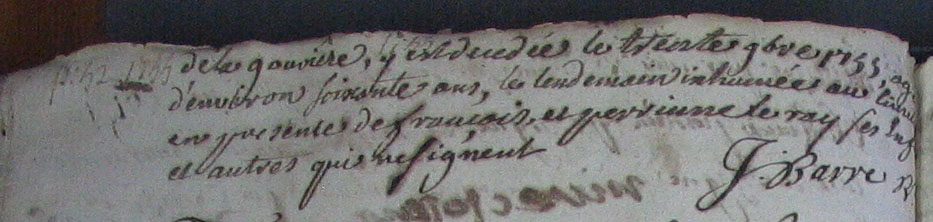 de la gouviere, y est decedée le trente 9bre 1755, agée
d'environ soixante ans, le lendemain inhumée au cimi
en presence de françois et perrinne le ray ses enf
et autres qui ne signent
J. Barre